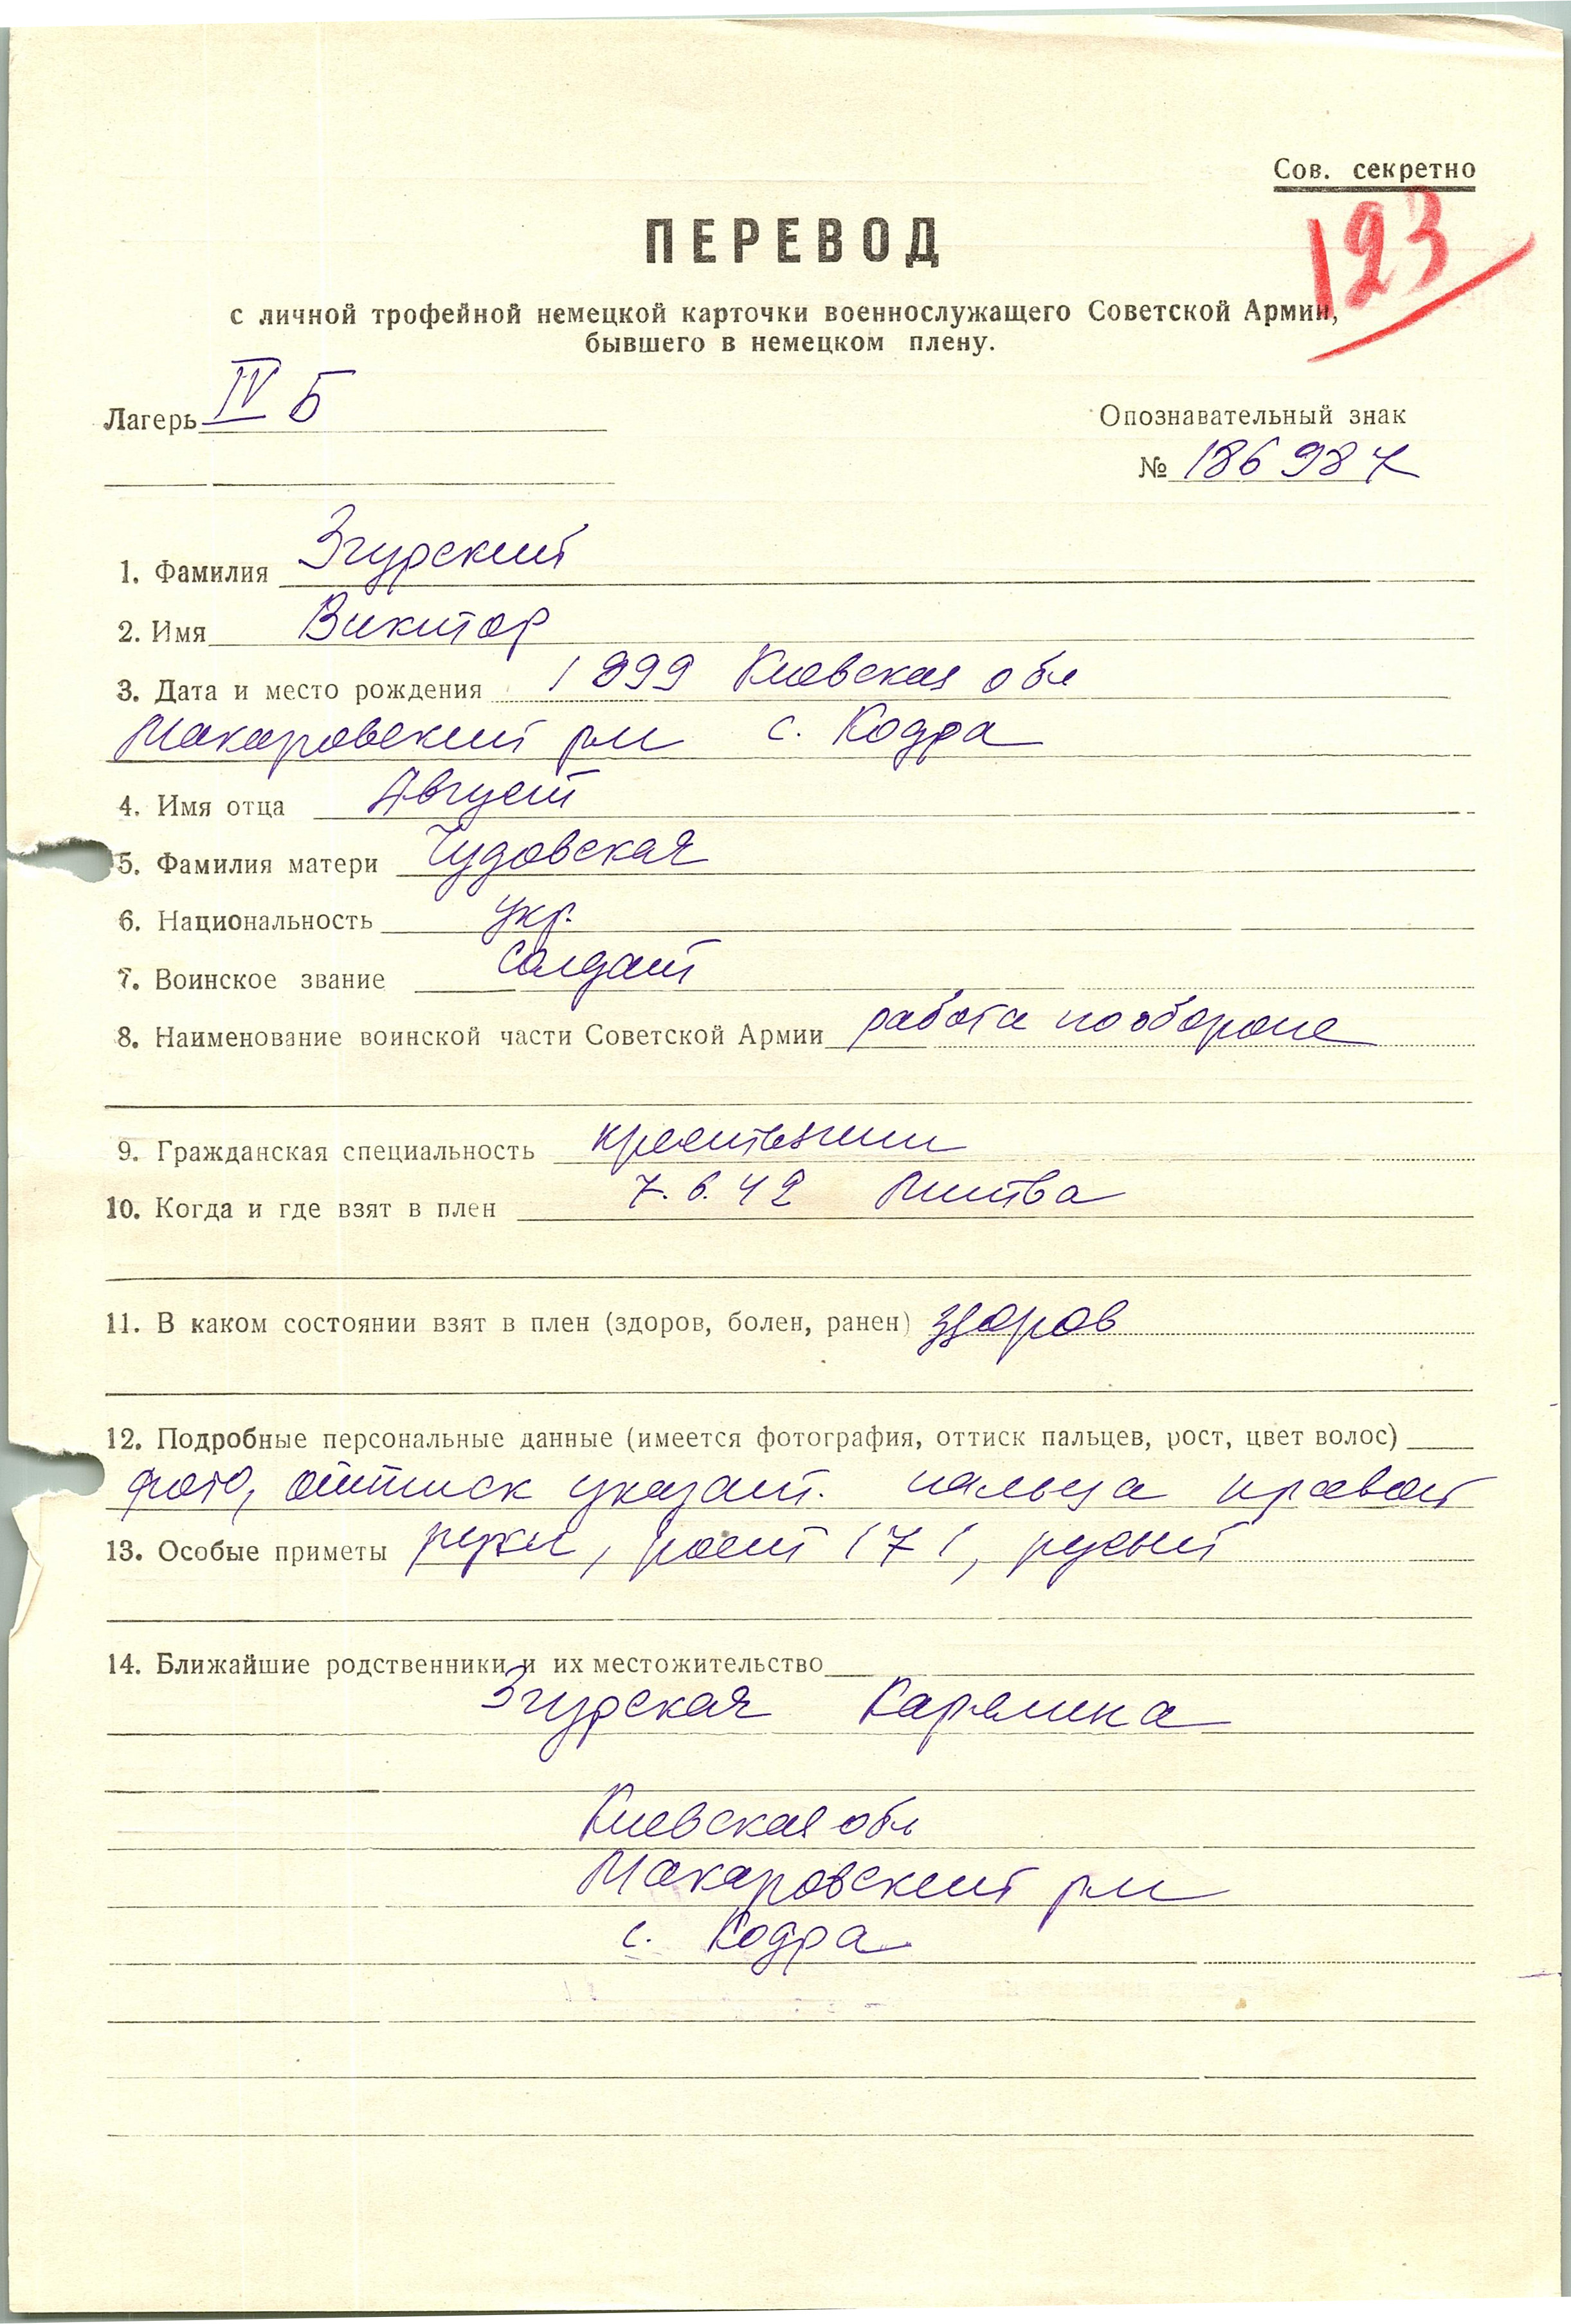 Сов. секретно
123
ПЕРЕВОД
с личной трофейной немецкой карточки военнослужащего Советской Армии,
бывшего в немецком плену.
Лагерь IV Б
Опознавательный знак
№ 186987
1. Фамилия Згурский
2. Имя Виктор
3. Дата и место рождения 1899 Киевская обл
Макаровский р-н с. Кодра
4. Имя отца Август
5. Фамилия матери Чудовская
6. Национальность укр.
7. Воинское звание солдат
8. Наименование воинской части Советской Армии работа по обороне
9. Гражданская специальность крестьянин
10. Когда и где взят в плен 7.6.42 Литва
11. В каком состоянии взят в плен (здоров, болен, ранен) здоров
12. Подробные персональные данные (имеется фотография, оттиск пальцев, рост, цвет волос)
фото, оттиск указат. пальца правой
13. Особые приметы руки, рост 171, русый
14. Ближайшие родственники и их местожительство
Згурская Каролина
Киевская обл
Макаровский р-н
с. Кодра